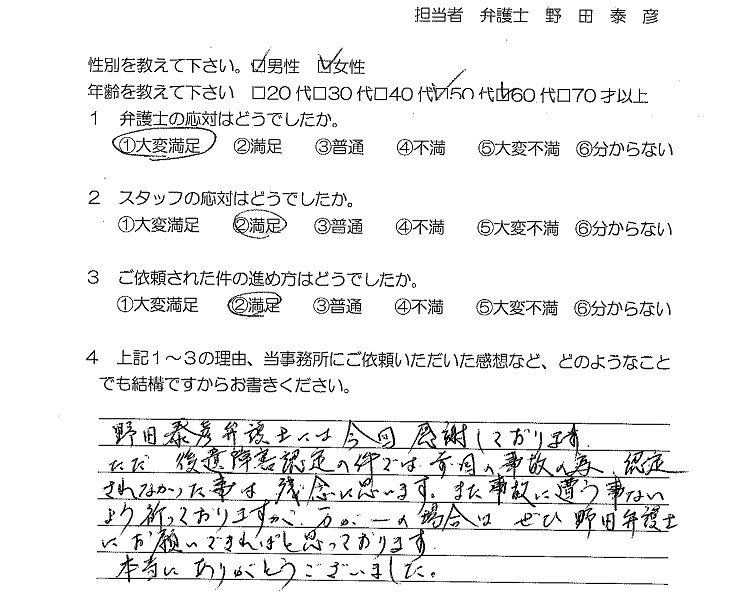 担当者 弁護士 野 田 泰 彦
性別を教えて下さい。☑男性 ☑女性
年齢を教えて下さい □20代□30代□40代☑50代☑60代□70才以上
1 弁護士の応対はどうでしたか。
①大変満足 ②満足 ③普通 ④不満 ⑤大変不満 ⑥分からない
2 スタッフの応対はどうでしたか。
①大変満足 ②満足 ③普通 ④不満 ⑤大変不満 ⑥分からない
3 ご依頼された件の進め方はどうでしたか。
①大変満足 ②満足 ③普通 ④不満 ⑤大変不満 ⑥分からない
4 上記1～3の理由、当事務所にご依頼いただいた感想など、どのようなこと
でも結構ですからお書きください。
野田泰彦弁護士には今回感謝しております。
ただ 後遺障害認定の件では 前回の事故の為、認定
されなかった事は 残念に思います。また事故に遭う事ない
よう祈っておりますが、万が一の場合は ぜひ 野田弁護士
にお願いできればと思っております。
本当に ありがとうございました。